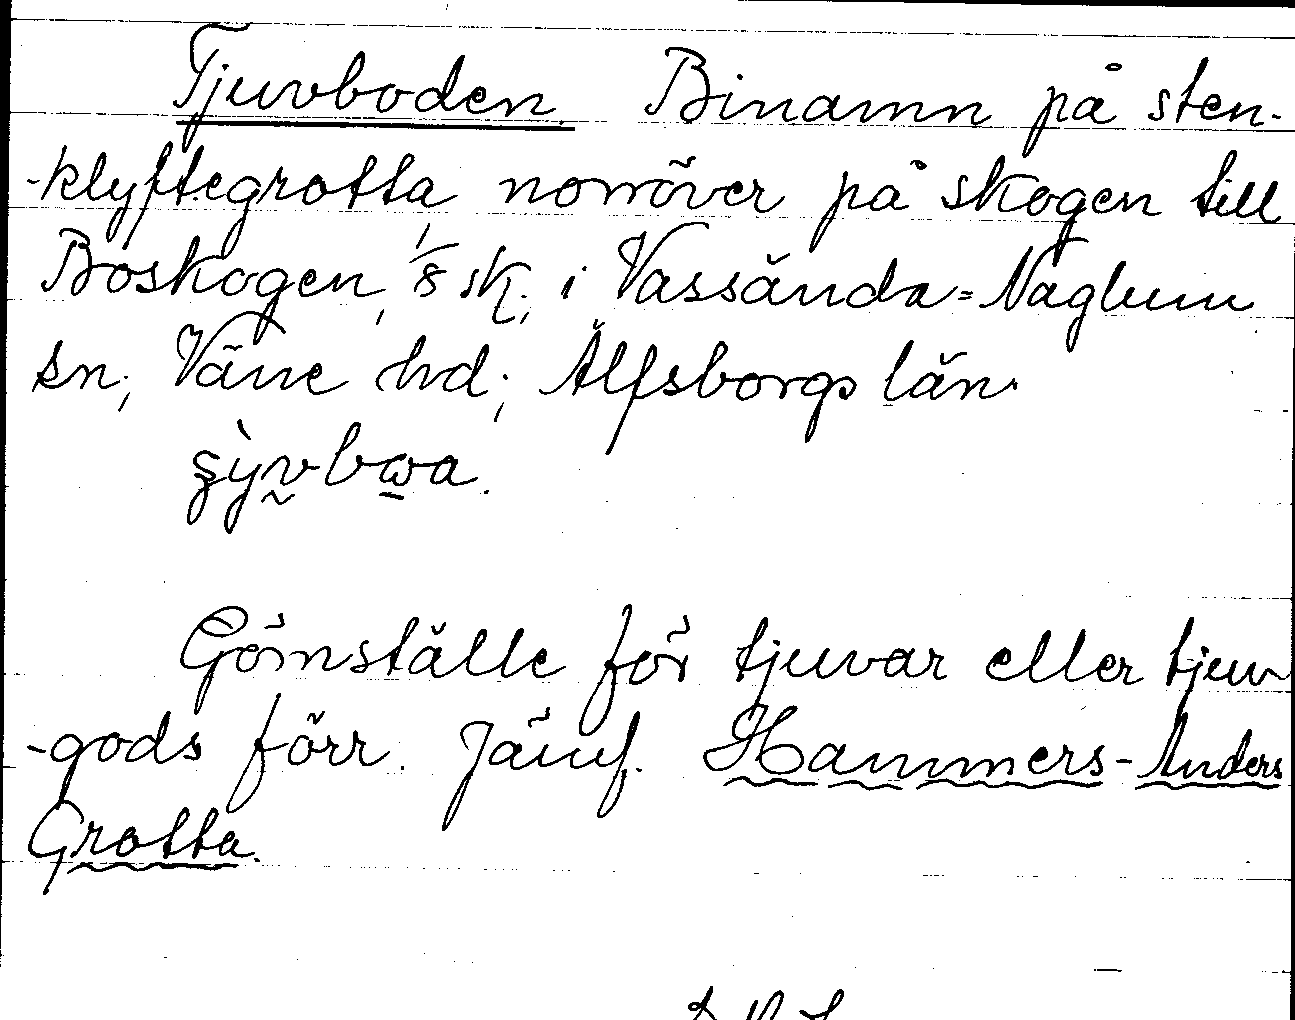 Tjuvboden. Binamn på sten-
-klyftegrotta, norröver på skogen till
Boskogen, 1/8 sk. i Vassända=Naglum
sn, Väne hd, Älfsborgs län.
Gömställe för tjuvar eller tjuv
-gods förr. Jämf. Hammers-Anders
Grotta.